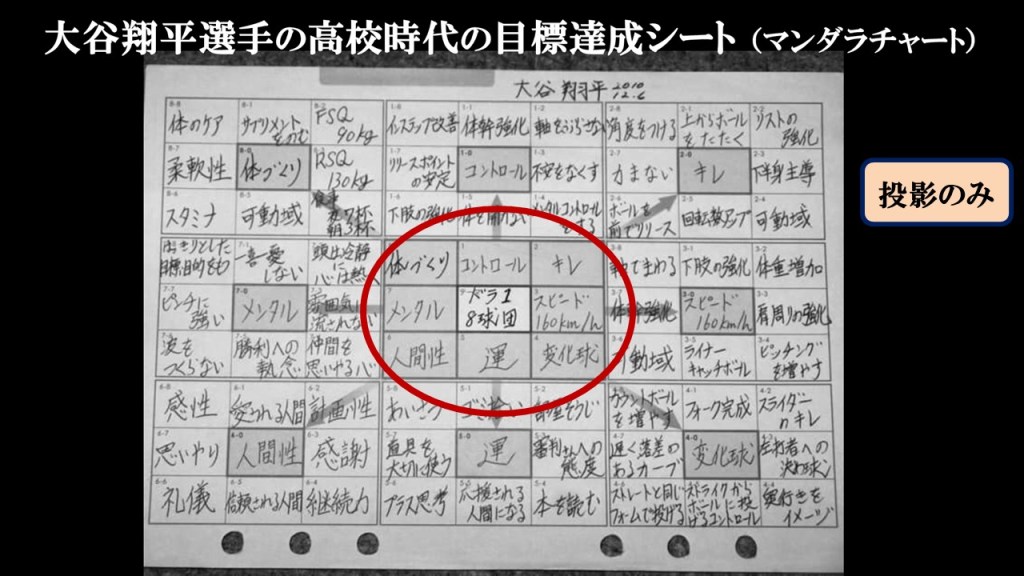 大谷翔平選手の高校時代の目標達成シート（マンダラチャート）
投影のみ
大谷 翔平 2010 12.6
体のケア
サプリメント
をのむ
FSQ
90kg
柔軟性
体づくり
RSQ
130kg
スタミナ
可動域
食事
夜7杯
朝3杯
インステップ改善
体幹強化
軸をぶらさない
リリースポイント
の安定
コントロール
不安をなくす
下肢の強化
体を開かない
メンタルコントロール
をする
角度をつける
上からボール
をたたく
リストの
強化
力まない
キレ
下半身主導
ボールを
前でリリース
回転数アップ
可動域
はっきりとした
目標、目的をもつ
一喜一憂
しない
頭は冷静に
心は熱く
ピンチに
強い
メンタル
雰囲気に
流されない
波を
つくらない
勝利への
執念
仲間を
思いやる心
体づくり
コントロール
キレ
メンタル
ドラ1
8球団
スピード
160km/h
人間性
運
変化球
軸でまわる
下肢の強化
体重増加
体幹強化
スピード
160km/h
肩周りの強化
可動域
ライナー
キャッチボール
ピッチング
を増やす
感性
愛される人間
計画性
思いやり
人間性
感謝
礼儀
信頼される人間
継続力
あいさつ
ゴミ拾い
部屋そうじ
道具を
大切に使う
運
審判さんへの
態度
プラス思考
応援される
人間になる
本を読む
カウントボール
を増やす
フォーク完成
スライダー
のキレ
遅く落差の
あるカーブ
変化球
左打者への
決め球
ストレートと同じ
フォームで投げる
ストライクから
ボールに投
げるコントロール
奥行きを
イメージ